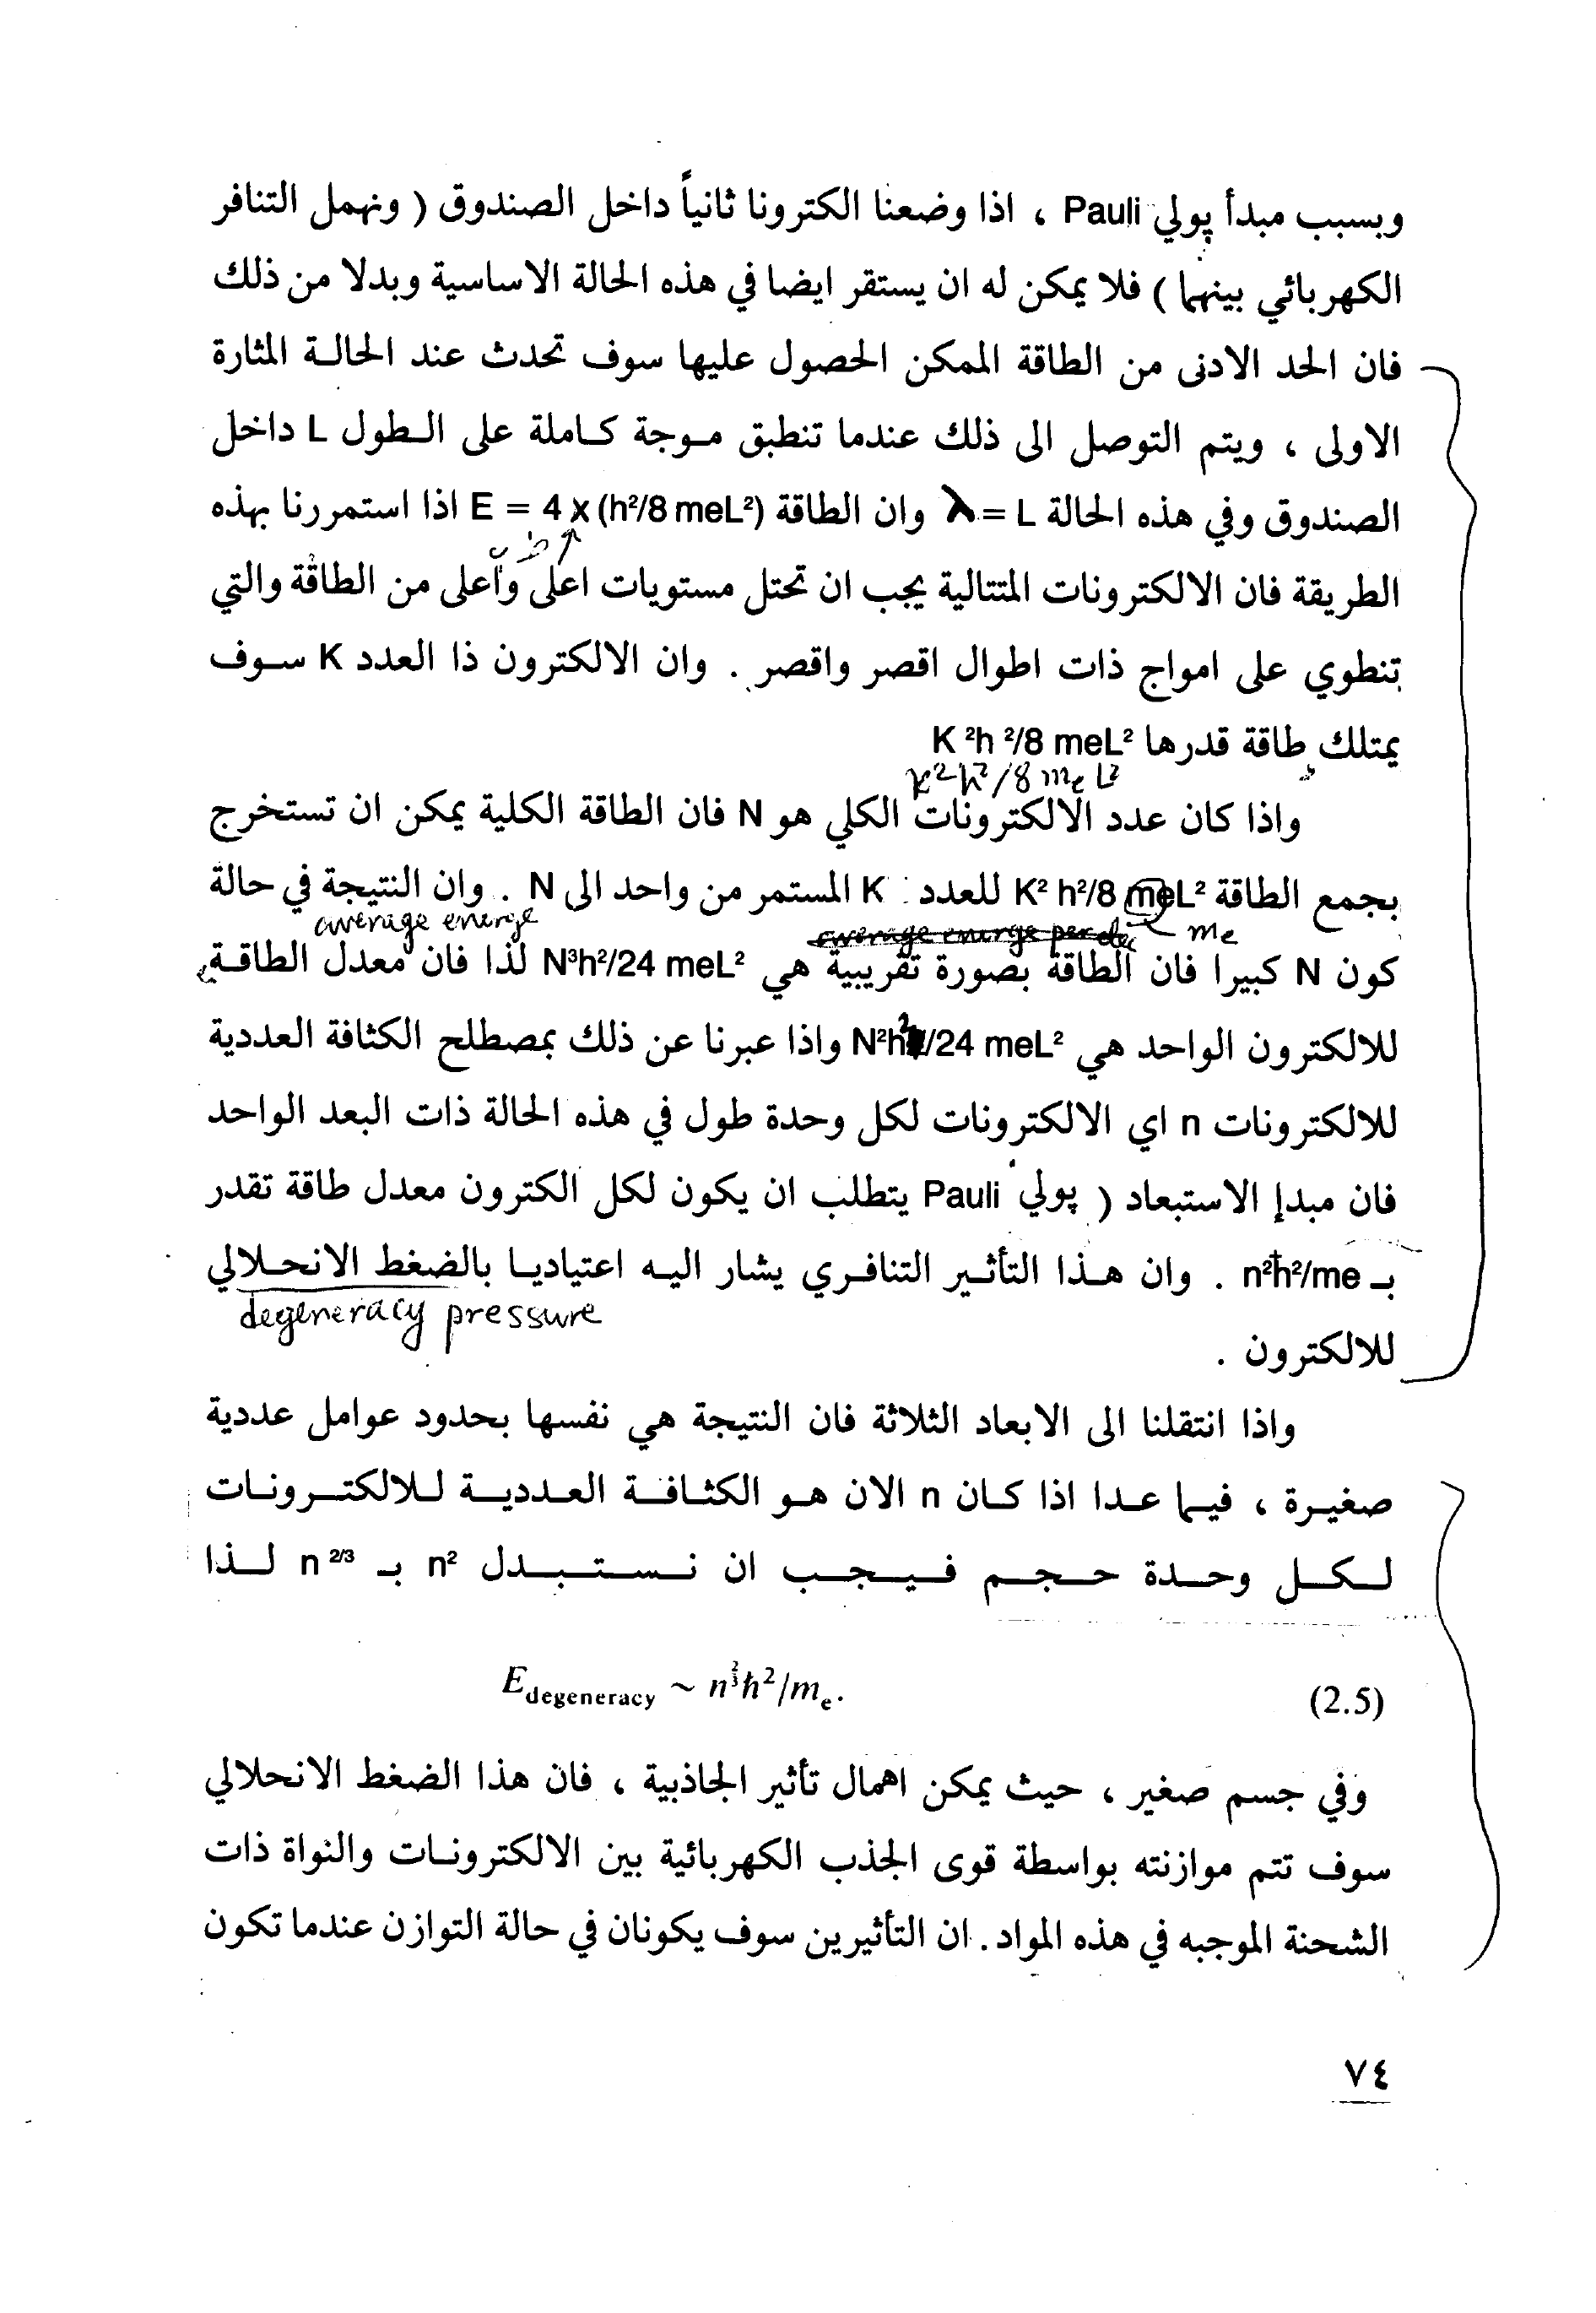 وبسبب مبدأ پولي Pauli ، اذا وضعنا الكترونا ثانياً داخل الصندوق ( ونهمل التنافر
الكهربائي بينهما ) فلا يمكن له ان يستقر ايضا في هذه الحالة الاساسية وبدلا من ذلك
فان الحد الادنى من الطاقة الممكن الحصول عليها سوف تحدث عند الحالة المثارة
الاولى ، ويتم التوصل الى ذلك عندما تنطبق موجة كاملة على الطول L داخل
الصندوق وفي هذه الحالة λ = L وان الطاقة E = 4 x (h²/8 meL²) اذا استمررنا بهذه
الطريقة فان الالكترونات المتتالية يجب ان تحتل مستويات اعلى وأعلى من الطاقة والتي
تنطوي على امواج ذات اطوال اقصر واقصر . وان الالكترون ذا العدد K سوف
يمتلك طاقة قدرها K ²h ²/8 meL²
k² h²/8 me L²
واذا كان عدد الالكترونات الكلي هو N فان الطاقة الكلية يمكن ان تستخرج
بجمع الطاقة K² h²/8 meL² للعدد K المستمر من واحد الى N . وان النتيجة في حالة
average energe
me
كون N كبيرا فان الطاقة بصورة تقريبية هي N³h²/24 meL² لذا فان معدل الطاقة
للالكترون الواحد هي N²h²/24 meL² واذا عبرنا عن ذلك بمصطلح الكثافة العددية
للالكترونات n اي الالكترونات لكل وحدة طول في هذه الحالة ذات البعد الواحد
فان مبدإ الاستبعاد ( پولي Pauli يتطلب ان يكون لكل الكترون معدل طاقة تقدر
بـ n²ħ²/me . وان هذا التأثير التنافري يشار اليه اعتياديا بالضغط الانحلالي
degeneracy pressure
للالكترون .
واذا انتقلنا الى الابعاد الثلاثة فان النتيجة هي نفسها بحدود عوامل عددية
صغيرة ، فيما عدا اذا كان n الان هو الكثافة العددية للالكترونات
لكل وحدة حجم فيجب ان نستبدل n² بـ n ²/³ لذا
E degeneracy ~ n^⅔ ħ²/mₑ. (2.5)
وفي جسم صغير ، حيث يمكن اهمال تأثير الجاذبية ، فان هذا الضغط الانحلالي
سوف تتم موازنته بواسطة قوى الجذب الكهربائية بين الالكترونات والنواة ذات
الشحنة الموجبه في هذه المواد . ان التأثيرين سوف يكونان في حالة التوازن عندما تكون
٧٤